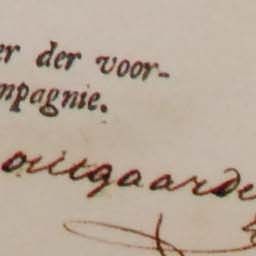 er der voor-
mpagnie.
outgaarde